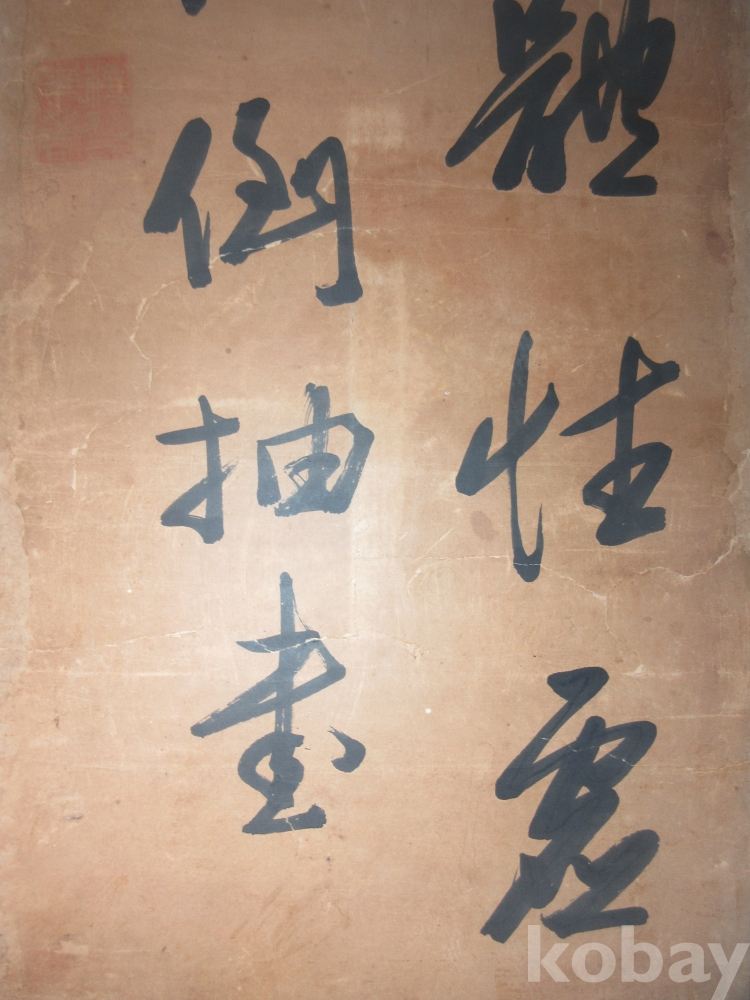 體性虛
倒抽書
kobay